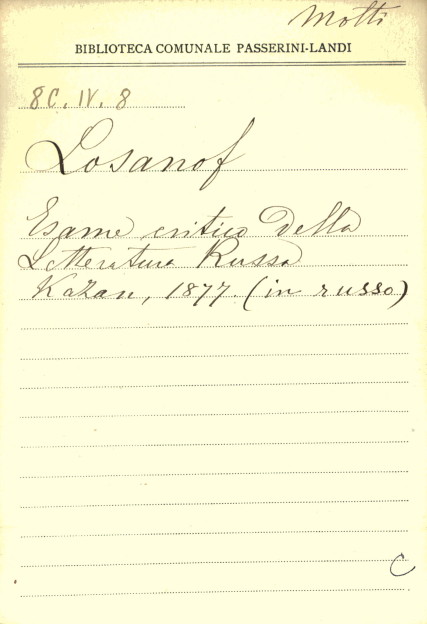 Motti
BIBLIOTECA COMUNALE PASSERINI-LANDI
8C. IV. 8
Losanof
Esame critico della
Letteratura Russa
Kazan, 1877. (in russo)
C